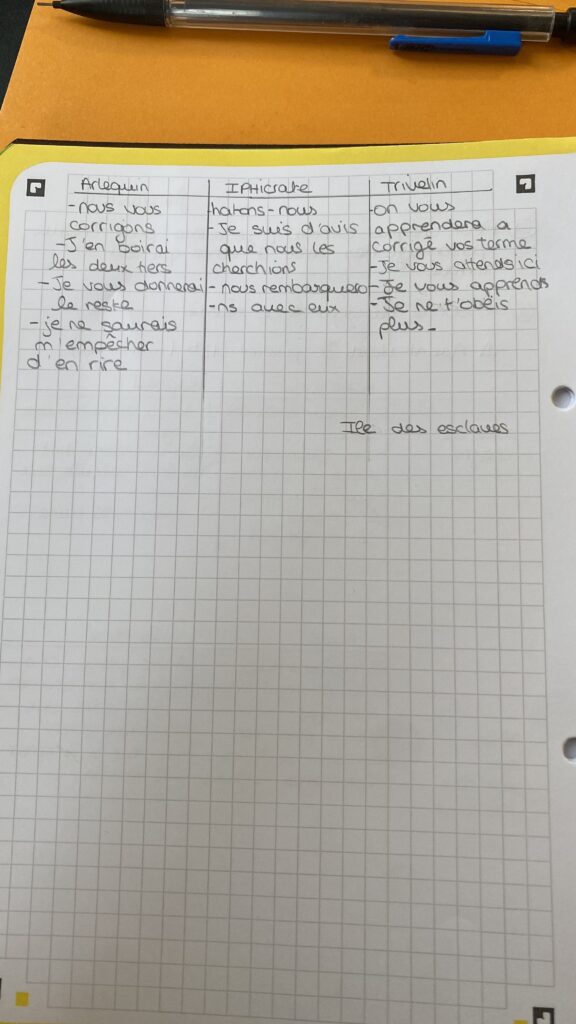 Arlequin
-nous vous
corrigons
-J'en boirai
les deux tiers
-Je vous donnerai
le reste
-je ne saurais
m'empêcher
d'en rire
IPHicrate
hatons-nous
-Je suis d'avis
que nous les
cherchions
-nous rembarquero
-ns avec eux
Trivelin
-on vous
apprendera a
corrigé vos terme
-Je vous attends ici
-Je vous apprends
-Je ne t'obéis
plus-
Ile des esclaves